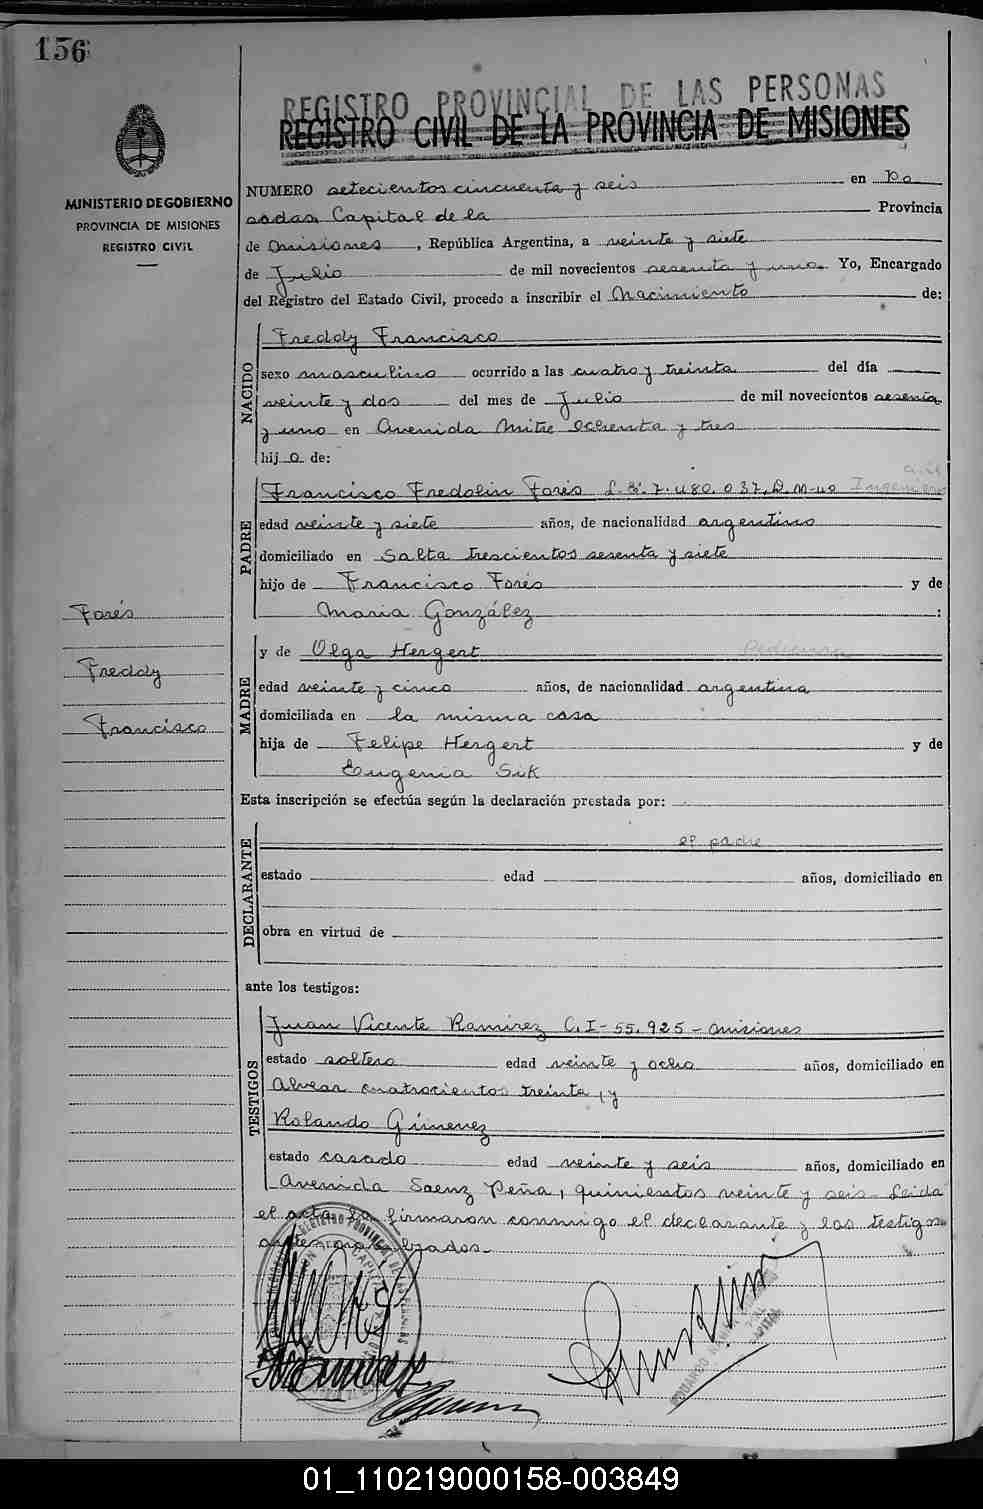 156
REGISTRO PROVINCIAL DE LAS PERSONAS
REGISTRO CIVIL DE LA PROVINCIA DE MISIONES
MINISTERIO DE GOBIERNO
PROVINCIA DE MISIONES
REGISTRO CIVIL
NUMERO setecientos cincuenta y seis en Po
sadas Capital de la Provincia
de Misiones, República Argentina, a veinte y siete
de Julio de mil novecientos sesenta y uno. Yo, Encargado
del Registro del Estado Civil, procedo a inscribir el Nacimiento de:
NACIDO
Freddy Francisco
sexo masculino ocurrido a las cuatro y treinta del día
veinte y dos del mes de Julio de mil novecientos sesenta
y uno en Avenida Mitre ochenta y tres
hij o de:
PADRE
Francisco Fredolin Forés L. E. 7.480.037, D. M-40 Ingeniero
edad veinte y siete años, de nacionalidad argentino
domiciliado en Salta trescientos sesenta y siete
hijo de Francisco Forés y de
Maria González :
Forés
Freddy
Francisco
MADRE
y de Olga Hergert
edad veinte y cinco años, de nacionalidad argentina
domiciliada en la misma casa
hija de Felipe Hergert y de
Eugenia Sik
Esta inscripción se efectúa según la declaración prestada por:
DECLARANTE
el padre
estado edad años, domiciliado en
obra en virtud de
ante los testigos:
TESTIGOS
Juan Vicente Ramirez C. I-55.925-Misiones
estado soltero edad veinte y ocho años, domiciliado en
Alvear cuatrocientos treinta, y
Rolando Gimenez
estado casado edad veinte y seis años, domiciliado en
Avenida Saenz Peña, quinientos veinte y seis. Leida
el acta, la firmaron conmigo el declarante y los testigos
01_110219000158-003849